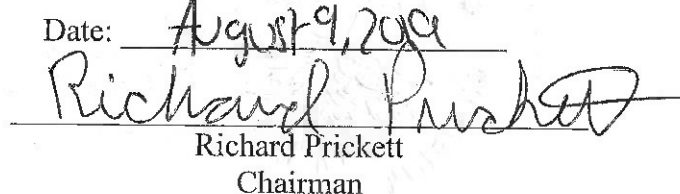 Date: August 9, 2019
Richard Prickett
Richard Prickett
Chairman